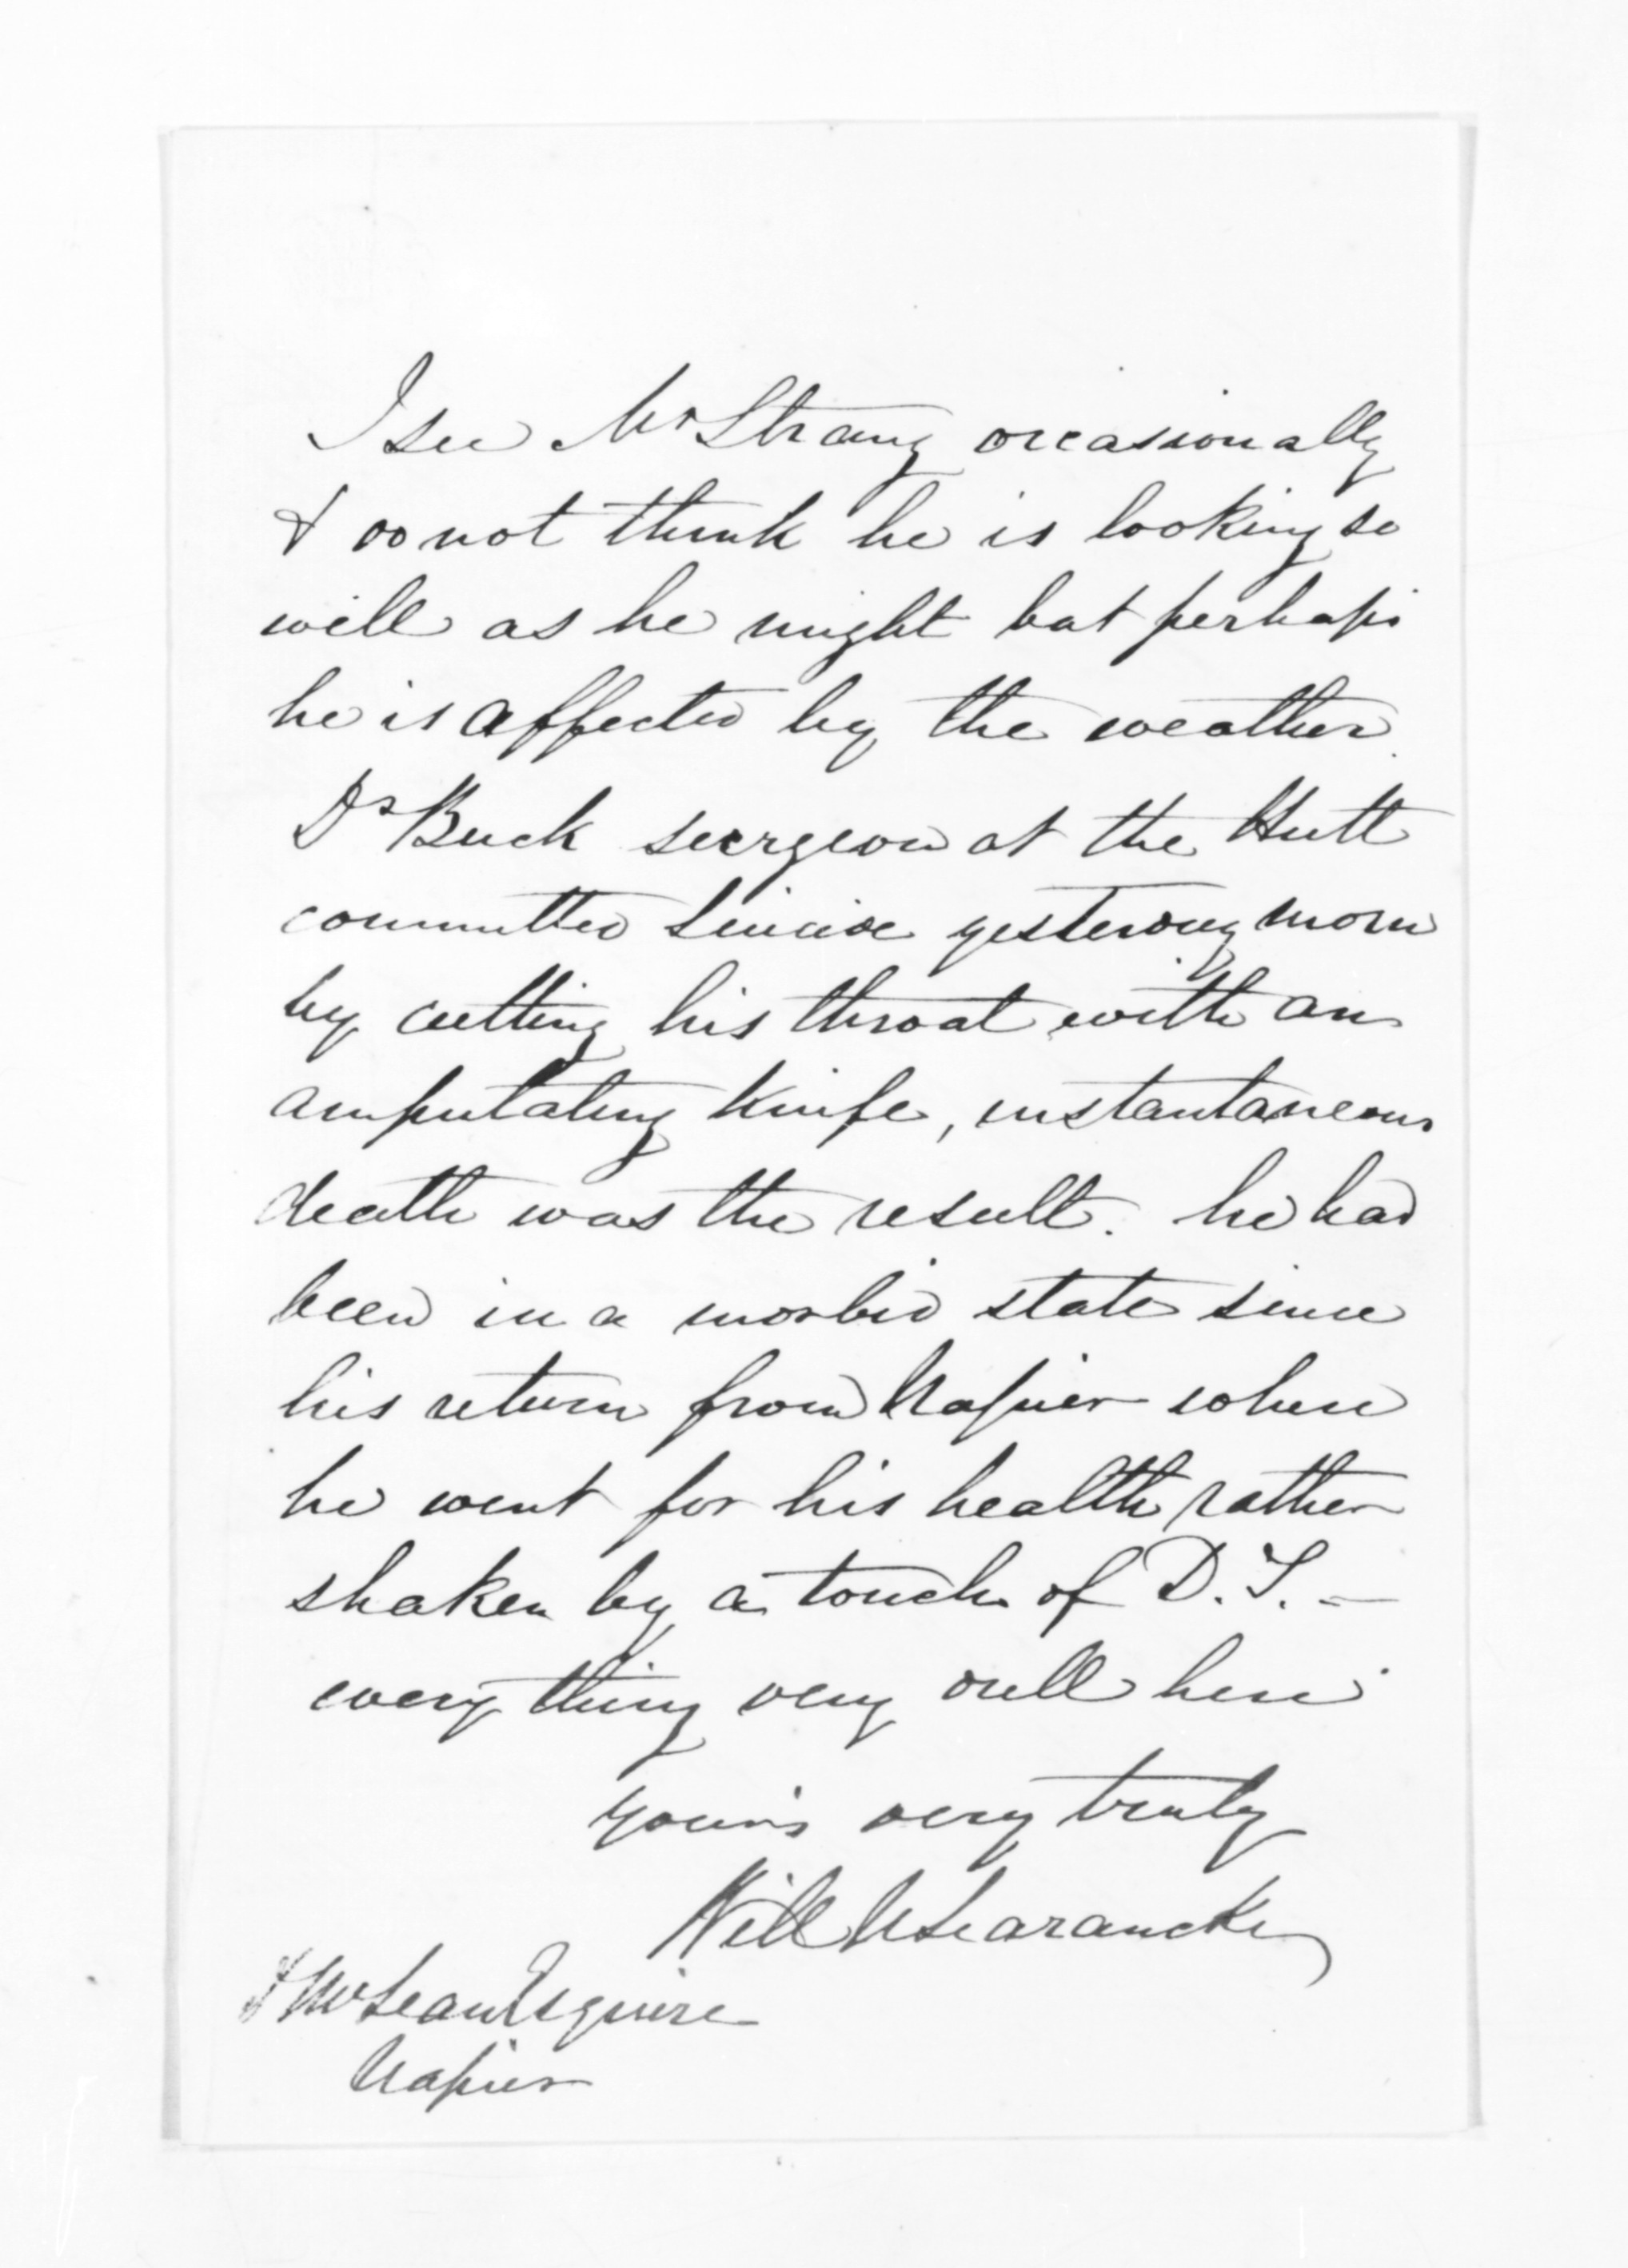 I see Mr Strang occasionally
& do not think he is looking so
well as he might but perhaps
he is affected by the weather.
Dr Buck surgeon at the Hutt
committed suicide yesterday morn
by cutting his throat with an
amputating knife, instantaneous
death was the result. he had
been in a morbid state since
his return from Napier when
he went for his health rather
shaken by a touch of D.T. -
every thing very dull here
yours very truly
Will N Searancke
D McLean Esquire
Napier